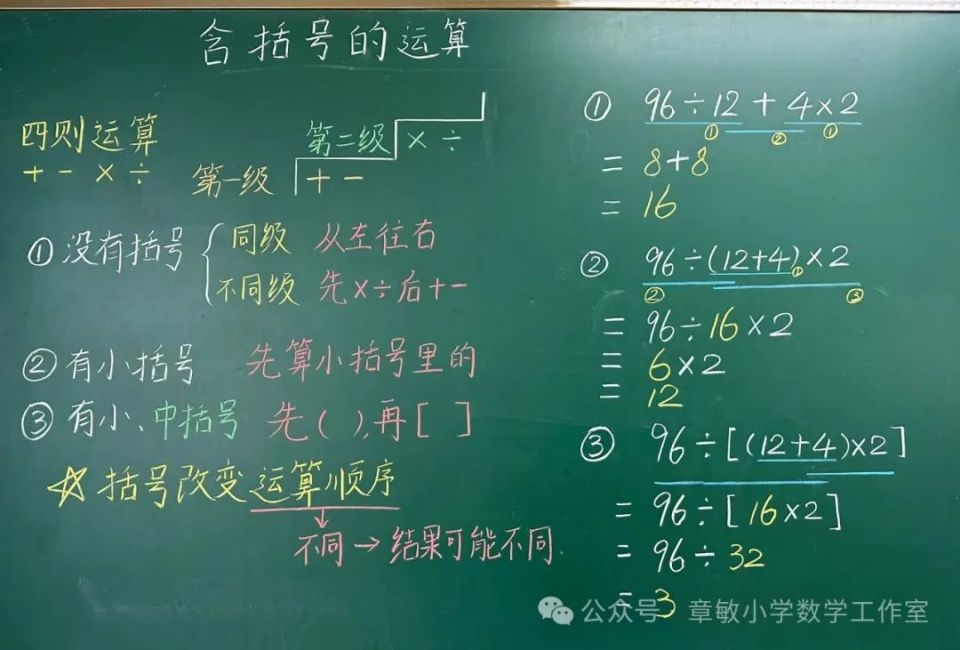 含括号的运算
四则运算
+ - × ÷
第二级 × ÷
第一级 + -
①没有括号 { 同级 从左往右
不同级 先×÷后+-
②有小括号 先算小括号里的
③有小、中括号 先( ),再[ ]
☆括号改变运算顺序
↓
不同→结果可能不同.
① 96÷12+4×2
① ② ①
= 8+8
= 16
② 96÷(12+4)×2
① ② ③
= 96÷16×2
= 6×2
= 12
③ 96÷[(12+4)×2]
= 96÷[16×2]
= 96÷32
= 3
公众号 章敏小学数学工作室